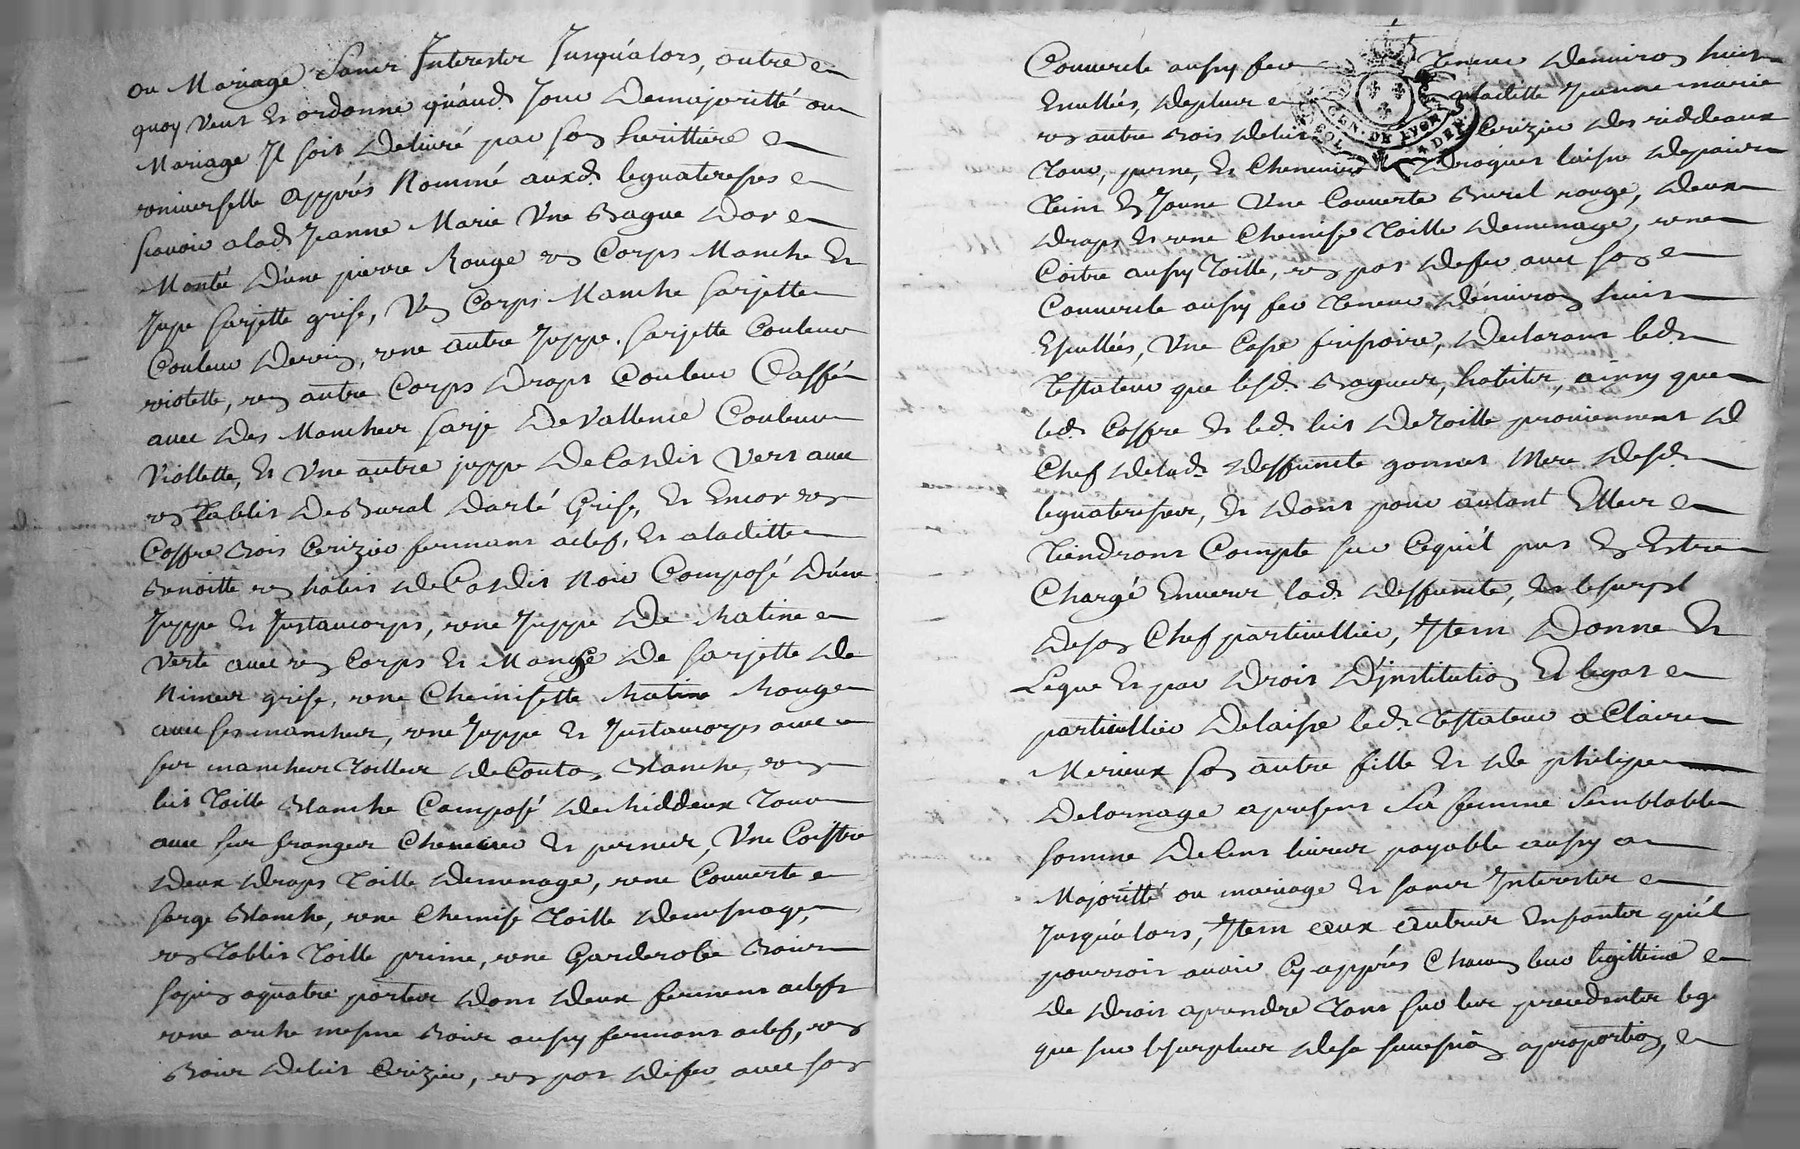 ou Mariage sancs Interester Jusquálors, outre e
quoy veut et ordonne quánd. Jour demajoritté ou
Mariage Jl soit delivré par son heritiere
universelle appres Nommé auxd. leguateresses e
scavoir alad. Jeanne Marie Vne Bague dor e
Monté d'une pierre Rouge un Corps Manche et
Jupe sarjette grise, Un Corps Manche sarjette
Couleur de vin, une autre Juppe sarjette Couleur
violette, un autre Corps draps Couleur Caffé
avec des Mancheur sarje de Vallence Couleur
Viollette, et Vne autre juppe de Cadis Vert avec
un Tablis de Bural darlé Grise, et Encor un
Coffre Bois Cerizier fermans aclef, et aladitte
Benoitte un habis de Cadis Noir Composé d'une
Juppe et Justaucorps, une Juppe de Ratine e
verte avec un Corps et Mange de sarjette de
Nimeur grise, une Chemisette Ratine Rouge
avec ses mancheur, une Juppe et Justaucorps avec
ses mancheur Toilleur de Couton Blanche, un
lict Toille Blanche Composé de Riddeux Tour
avec ses frangeur Chevessier et perneur, Vne Coistre
deux draps Toille demenage, une Couverte e
sarge Blanche, une Chemise Toille demesnage,
un Tablis Toille prime, une Garderobe Bois
sapin aquatre porteur dont deux fermens aclefs
une arche mesme Bois ausy fermans aclef, un
Bois delict Cerizier, un pot defer avec son
Couvercle aussy fer Teneur denviron huit
Ecuellés, deplus e aladitte Jeanne marie
un autre Bois delict Cerizier des riddeaux
Tour, perne, et Chevessier droguet laisse depaire
Teint en Jaune Une Couverte Burel rouge, deux
draps et une Chemise Toille demenage, une
Coitre aussy Toille, un pot defer avec son e
Couvercle aussy fer Teneur dénviron huit
Ecuellées, Une Casse frissoire, declarant led.
Testateur que lesd. Bagueur, habiter, ainsy que
led. Coffre et led. lict de Toille proviennent d
Chef delad. deffuncte gonnet Mere desd.
leguateresseur, et dont pour autant Elleur e
Tiendront Compte sur Cequíl peut En Estre
Chargé Enverer lad. deffuncte, et lesurpl
deson Chef particullier, Jtem Donne et
Legue et par droit Dínstitution Et legat e
particullier delaisse led. Testateur a Claire
Merieux son autre fille et de philipe
delornage apresent sa femme semblable
somme de Cent livreur payable aussy a
Majoritté ou mariage et sancr Interester e
Jusquálors, Jtem eaux autreur Enfanter quíl
pourroit avoir Cy appres Chacun leur legittime e
de droit aprendre Tant sur ler precedenter leg
que sur lesurpleur desa succession aproportion, e
GEN. DE LYON